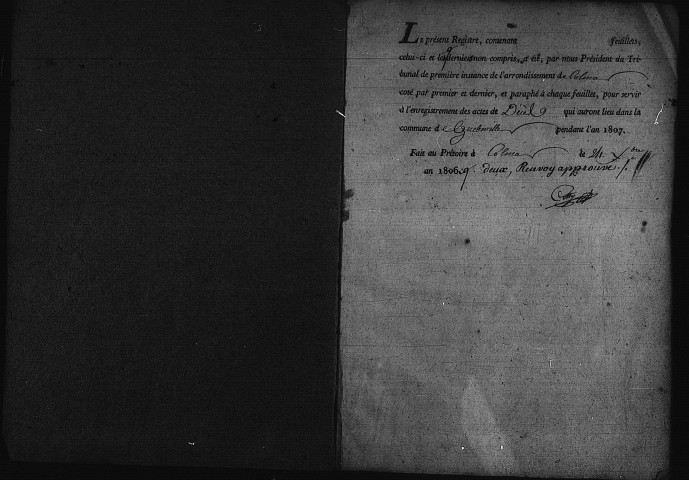 Le présent Registre, contenant feuillets,
celui-ci et le dernier non compris, a été, par nous Président du Tri-
bunal de première instance de l'arrondissement de Colmar
coté par premier et dernier, et paraphé à chaque feuilles, pour servir
à l'enregistrement des actes de Décès qui auront lieu dans la
commune d pendant l'an 1807.
Fait au Prétoire à Colmar le 24 Xbre
an 1806. deux, Renvoy approuvé